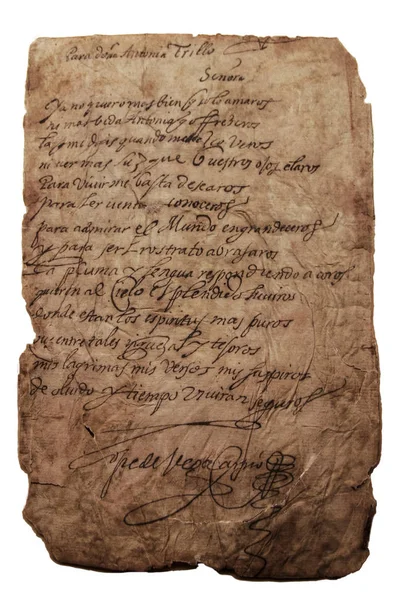 Para doña Antonia Trillo
Señora
Ya no quiero mas bien q solo amaros
ni mas bida Antonia q ofreceros
la q me dais quando Veros
ni ver mas luz que Vuestros ojos claros
Para Vivir me basta desearos
para ser conoceros
para admirar el Mundo engrandeceros
y para ser Erostrato abrasaros
La pluma y lengua respondiendo a coros
quieren al Cielo esplendido subiros
donde estan los espiritus mas puros
que entre tales riquezas y tesoros
mis lagrimas mis versos mis suspiros
de oluido y tiempo viviran seguros
Lope de Vega Carpio